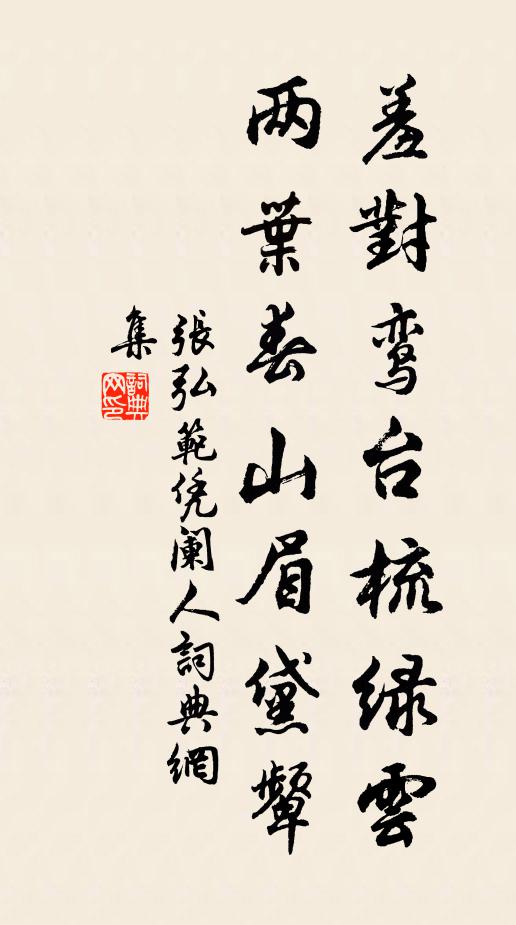 羞對鸾台梳绿雲
两葉春山眉黛顰
張弘範凭阑人詞典網
集
詞典网印